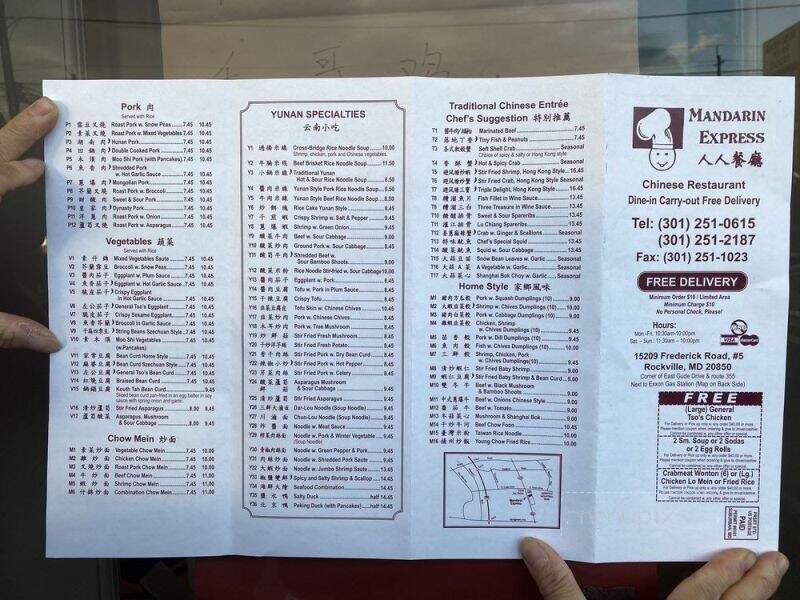 Pork 肉
Served with Rice
P1 雪豆叉燒 Roast Pork w. Snow Peas 7.45 10.45
P2 素菜叉燒 Roast Pork w. Mixed Vegetables 7.45 10.45
P3 湖南肉 Hunan Pork 7.45 10.45
P4 回鍋肉 Double Cooked Pork 7.45 10.45
P5 木須肉 Moo Shi Pork (with Pancakes) 7.45 10.45
P6 魚香肉 Shredded Pork
w. Hot Garlic Sauce 7.45 10.45
P7 蔥爆肉 Mongolian Pork 7.45 10.45
P8 芥蘭叉燒 Roast Pork w. Broccoli 7.45 10.45
P9 甜酸肉 Sweet & Sour Pork 7.45 10.45
P10 皇家肉 Dynasty Pork 7.45 10.45
P11 洋蔥肉 Roast Pork w. Onion 7.45 10.45
P12 蘆筍叉燒 Roast Pork w. Asparagus 7.45 10.45
Vegetables 蔬菜
Served with Rice
V1 素什錦 Mixed Vegetables Saute 7.45 10.45
V2 芥蘭雪豆 Broccoli w. Snow Peas 7.45 10.45
V3 醬爆茄子 Eggplant w. Plum Sauce 7.45 10.45
V4 魚香茄子 Eggplant w. Hot Garlic Sauce 7.45 10.45
V5 脆皮茄子 Crispy Eggplant
in Hot Garlic Sauce 7.45 10.45
V6 左公茄子 General Tso's Eggplant 7.45 10.45
V7 脆皮茄子 Crispy Sesame Eggplant 7.45 10.45
V8 魚香芥蘭 Broccoli w. Garlic Sauce 7.45 10.45
V9 干扁四季豆 String Beans Szechuan Style 7.45 10.45
V10 素木須 Moo Shi Vegetables 7.45 10.45
(w.Pancakes)
V11 家常豆腐 Bean Curd Home Style 7.45 10.45
V12 麻婆豆腐 Bean Curd Szechuan Style 7.45 10.45
V13 左公豆腐 General Tso's Bean Curd 7.45 10.45
V14 紅燒豆腐 Braised Bean Curd 7.45 10.45
V15 鍋蹋豆腐 Kouth Bean Curd 9.45
Sliced bean curd pan-fried in an egg batter in soy
sauce with spring onion and garlic.
V16 清炒蘆筍 Stir Fried Asparagus 8.00 9.45
V17 蘆筍酸菜 Asparagus, Mushroom
& Sour Cabbage 8.00 9.45
Chow Mein 炒面
M1 素菜炒面 Vegetable Chow Mein 7.45 10.00
M2 雞炒面 Chicken Chow Mein 7.45 10.00
M3 叉燒炒面 Roast Pork Chow Mein 7.45 10.00
M4 牛炒面 Beef Chow Mein 7.45 11.00
M5 蝦炒面 Shrimp Chow Mein 7.45 11.00
M6 什錦炒面 Combination Chow Mein 7.45 11.00
YUNAN SPECIALTIES
云南小吃
Y1 過橋米線 Cross-Bridge Rice Noodle Soup 10.00
Shrimp, chicken, pork and Chinese vegetables.
Y2 牛腩米線 Beef Brisket Rice Noodle Soup 11.50
Y3 小鍋米線 Traditional Yunan
Hot & Sour Rice Noodle Soup 8.50
Y4 醬肉米線 Yunan Style Pork Rice Noodle Soup 8.50
Y5 雞肉米線 Yunan Style Beef Rice Noodle Soup 8.50
Y6 炒餌塊 Rice Cake Yunan Style 8.45
Y7 干煎蝦 Crispy Shrimp w. Salt & Pepper 9.45
Y8 蔥爆蝦 Shrimp w. Green Onion 9.45
Y9 酸菜牛肉 Beef w. Sour Cabbage 9.45
Y10 酸菜炒肉 Ground Pork w. Sour Cabbage 8.45
Y11 酸筍牛肉 Shredded Beef w.
Sour Bamboo Shoots 9.00
Y12 酸菜米粉 Rice Noodle Stir-fried w. Sour Cabbage 10.00
Y13 醬肉茄子 Eggplant w. Pork 9.45
Y14 醬肉豆腐 Tofu w. Pork in Plum Sauce 9.45
Y15 干辣豆腐 Crispy Tofu 8.45
Y16 韭菜豆腐皮 Tofu Skin w. Chinese Chives 10.45
Y17 韭菜炒肉 Pork w. Chinese Chives 9.45
Y18 木耳炒肉 Pork w. Tree Mushroom 9.45
Y19 炒鮮菇 Stir Fried Fresh Mushroom 9.45
Y20 干炒洋芋絲 Stir Fried Fresh Potato 8.45
Y21 香干肉絲 Stir Fried Pork w. Dry Bean Curd 9.45
Y22 辣椒小炒 Stir Fried Pork w. Hot Pepper 9.45
Y23 芹菜肉絲 Stir Fried Pork w. Celery 9.45
Y24 酸菜蘆筍 Asparagus Mushroom
& Sour Cabbage 9.45
Y25 清炒蘆筍 Stir Fried Asparagus 9.45
Y26 三鮮大滷面 Dar-Lou Noodle (Soup Noodle) 9.45
Y27 川滷面 Chun-Lou Noodle (Soup Noodle) 9.45
Y28 炸醬面 Noodle w. Meat Sauce 9.45
Y29 榨菜肉絲面 Noodle w. Pork & Winter Vegetable 9.45
(Soup Noodle)
Y30 Noodle w. Green Pepper & Pork 9.45
Y31 肉絲炒面 Noodle w. Shredded Pork Saute 9.45
Y32 大蝦炒面 Noodle w. Jumbo Shrimp Saute 13.45
Y33 椒鹽雙鮮 Spicy and Salty Shrimp & Scallop 14.45
Y34 海鮮大燴 Seafood Combination 14.45
Y35 鹽水鴨 Salty Duck half 14.45
Y36 北京鴨 Peking Duck (with Pancakes) half 14.45
Traditional Chinese Entrée
Chef's Suggestion 特別推薦
T1 醬牛肉 Marinated Beef 7.45
T2 落地丁香 Tiny Fish & Peanuts 7.45
T3 各式軟殼蟹 Soft Shell Crab Seasonal
Choice of spicy & salty or Hong Kong style
T4 香酥蟹 Hot & Spicy Crab Seasonal
T5 避風塘炒蝦 Stir Fried Shrimp, Hong Kong Style 16.45
T6 避風塘炒蟹 Stir Fried Crab, Hong Kong Style Seasonal
T7 避風塘三寶 Triple Delight, Hong Kong Style 16.45
T8 糟溜魚片 Fish Fillet in Wine Sauce 13.45
T9 糟溜三白 Three Treasure in Wine Sauce 13.45
T10 糖醋排骨 Sweet & Sour Spareribs 13.45
T11 瀘江排骨 Lu Chiang Spareribs 13.45
T12 Crab w. Ginger & Scallions Seasonal
T13 特味魷魚 Chef's Special Squid 13.45
T14 酸菜魷魚 Squid w. Sour Cabbage 13.45
T15 大蒜豆苗 Snow Bean Leaves w. Garlic Seasonal
T16 大蒜A菜 A Vegetable w. Garlic Seasonal
T17 大蒜菜心 Shanghai Bok Choy w. Garlic Seasonal
Home Style 家鄉風味
M1 豬肉方瓜餃 Pork w. Squash Dumplings (10) 9.00
M2 大蝦韭菜餃 Shrimp w. Chives Dumplings (10) 10.00
M3 豬肉白菜餃 Pork w. Cabbage Dumplings (10) 9.00
M4 雞蝦韭菜餃 Chicken, Shrimp
w. Chives Dumplings (10) 9.45
M5 茴香餃 Pork w. Dill Dumplings (10) 9.45
M6 魚肉餃 Fish w. Chives Dumplings (10) 10.00
M7 三鮮餃 Shrimp, Chicken, Pork
w. Chives Dumplings(10) 9.45
M8 清炒蝦仁 Stir Fried Baby Shrimp 9.00
M9 蝦仁豆腐 Stir Fried Baby Shrimp & Bean Curd 9.00
M10 雙冬牛 Beef w. Black Mushroom
& Bamboo Shoots 9.00
M11 中式蔥爆牛 Beef w. Onions Chinese Style 9.00
M12 番茄牛 Beef w. Tomato 9.00
M13 冬菇菜心 Mushroom & Shanghai Bok 9.00
M14 干炒牛河 Beef Chow Foon 10.00
M15 臺灣米粉 Taiwan Rice Noodle 10.00
M16 揚州炒飯 Young Chow Fried Rice 10.00
MANDARIN
EXPRESS
人人餐廳
Chinese Restaurant
Dine-in Carry-out Free Delivery
Tel: (301) 251-0615
(301) 251-2187
Fax: (301) 251-1023
FREE DELIVERY
Minimum Order $10 / Limited Area
Minimum Charge $10
No Personal Check, Please!
Hours:
Mon.-Fri. 10:30am-10:00pm
Sat. - Sun. 11:30am - 10:00pm
VISA MasterCard
15209 Frederick Road, #5
Rockville, MD 20850
Corner of East Gude Drive & route 355
Next to Exxon Gas Station (Map on Back Side)
FREE
(Large) General
Tso's Chicken
For Delivery or Pick up only w. any order $40.00 or more.
Please mention coupon when ordering & give to driver/cashier.
Cannot be combined w. any other offer or special
2 Sm. Soup or 2 Sodas
or 2 Egg Rolls
Please mention coupon when ordering & give to driver/cashier.
Cannot be combined w. any other offer or special
Crabmeat Wonton (6) or (Lg.)
Chicken Lo Mein or Fried Rice
Cannot be combined w. any other offer or special
PRSRT STD
US POSTAGE
PAID